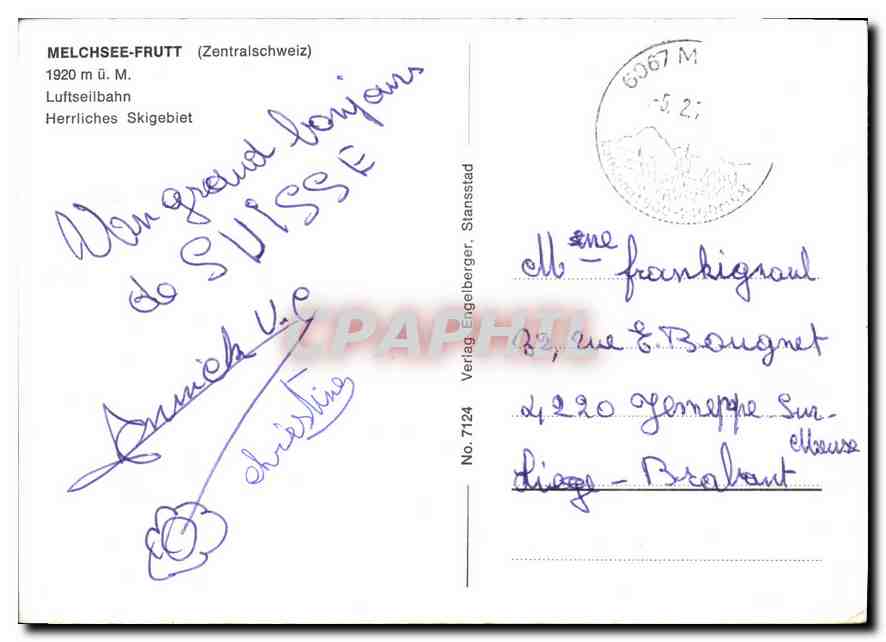 MELCHSEE-FRUTT (Zentralschweiz)
1920 m ü. M.
Luftseilbahn
Herrliches Skigebiet
grand bonjour
de SUISSE
Annick V.C
christine
No. 7124 Verlag Engelberger, Stansstad
6067 M
-5.2.
Mme frankignoul
32, rue E. Bougnet
4220 Jemeppe Sur-
Meuse
Liege - Brabant
CPAPHIL